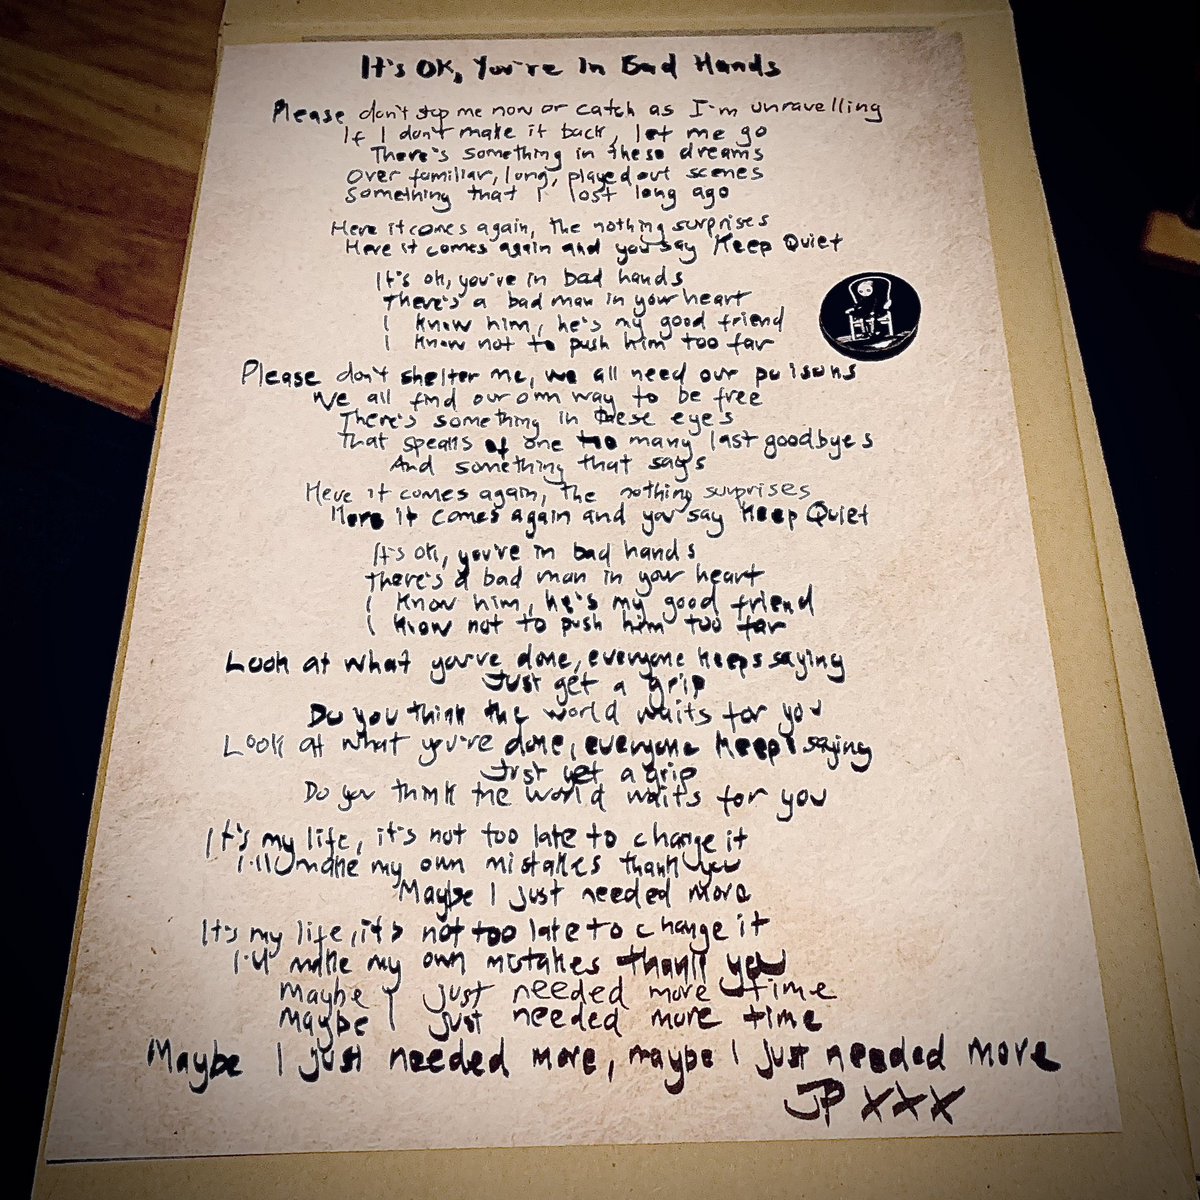 It's OK, You're In Bad Hands
Please don't stop me now or catch as I'm unravelling
If I don't make it back, let me go
There's something in these dreams
Over familiar, long, played out scenes
Something that I lost long ago
Here it comes again, the nothing surprises
Here it comes again and you say Keep Quiet
It's ok, you're in bad hands
There's a bad man in your heart
I know him, he's my good friend
I know not to push him too far
Please don't shelter me, we all need our poisons
We all find our own way to be free
There's something in these eyes
That speaks of one too many last goodbyes
And something that says
Here it comes again, the nothing surprises
Here it comes again and you say Keep Quiet
It's ok, you're in bad hands
There's a bad man in your heart
I know him, he's my good friend
I know not to push him too far
Look at what you've done, everyone keeps saying
Just get a grip
Do you think the world waits for you
Look at what you've done, everyone keeps saying
Just get a grip
Do you think the world waits for you
It's my life, it's not too late to change it
I'll make my own mistakes thank you
Maybe I just needed more
It's my life, it's not too late to change it
I'll make my own mistakes thank you
Maybe I just needed more time
Maybe I just needed more time
Maybe I just needed more, maybe I just needed more
JP xxx